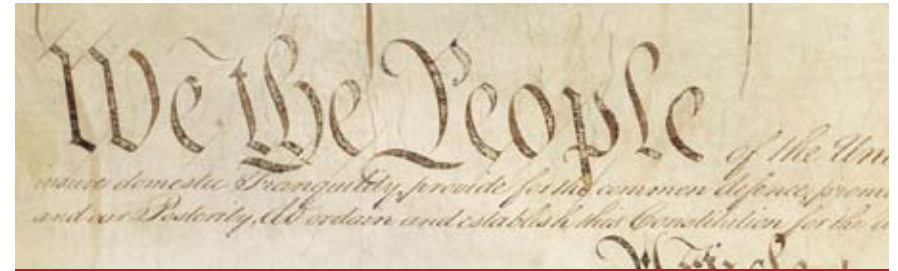 We the People of the Un
insure domestic Tranquility, provide for the common defence, promo
and our Posterity, do ordain and establish this Constitution for the U
Article